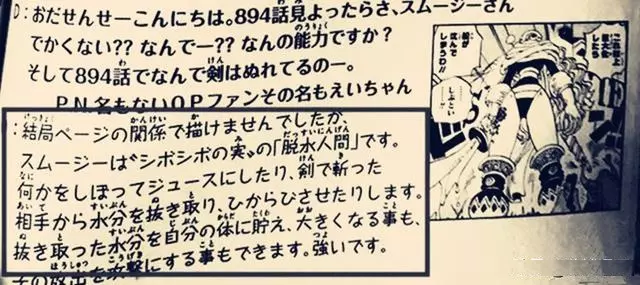 D：おだせんせーこんにちは。894話見よったらさ、スムージーさん
でかくない？？なんでー？？なんの能力ですか？
そして894話でなんで剣はぬれてるのー。
P.N.名もないOPファンその名もえいちゃん
：結局ページの関係で描けませんでしたが、
スムージーは“シボシボの実”の「脱水人間」です。
何かをしぼってジュースにしたり、剣で斬った
相手から水分を抜き取り、ひからびさせたりします。
抜き取った水分を自分の体に貯え、大きくなる事も、
その放出を攻撃にする事もできます。強いです。
これ以上
巨大化
したら
船が
沈んで
しまう!!